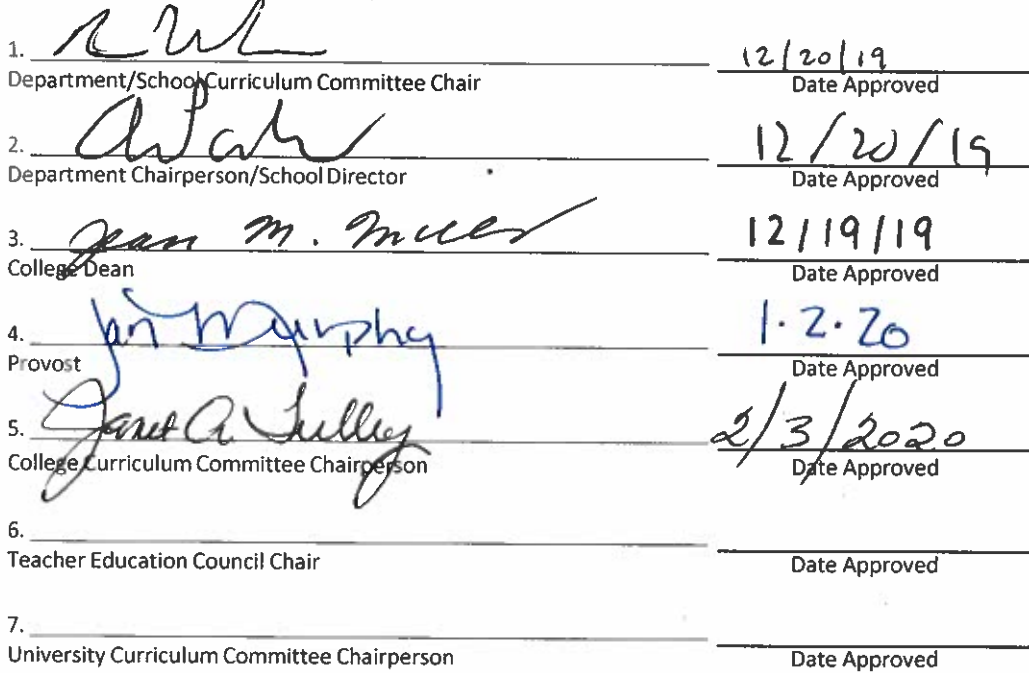 1. 12/20/19
Department/School Curriculum Committee Chair Date Approved
2. 12/20/19
Department Chairperson/School Director Date Approved
3. Jean M. 12/19/19
College Dean Date Approved
4. Jan Murphy 1.2.20
Provost Date Approved
5. Janet A. Tulley 2/3/2020
College Curriculum Committee Chairperson Date Approved
6.
Teacher Education Council Chair Date Approved
7.
University Curriculum Committee Chairperson Date Approved